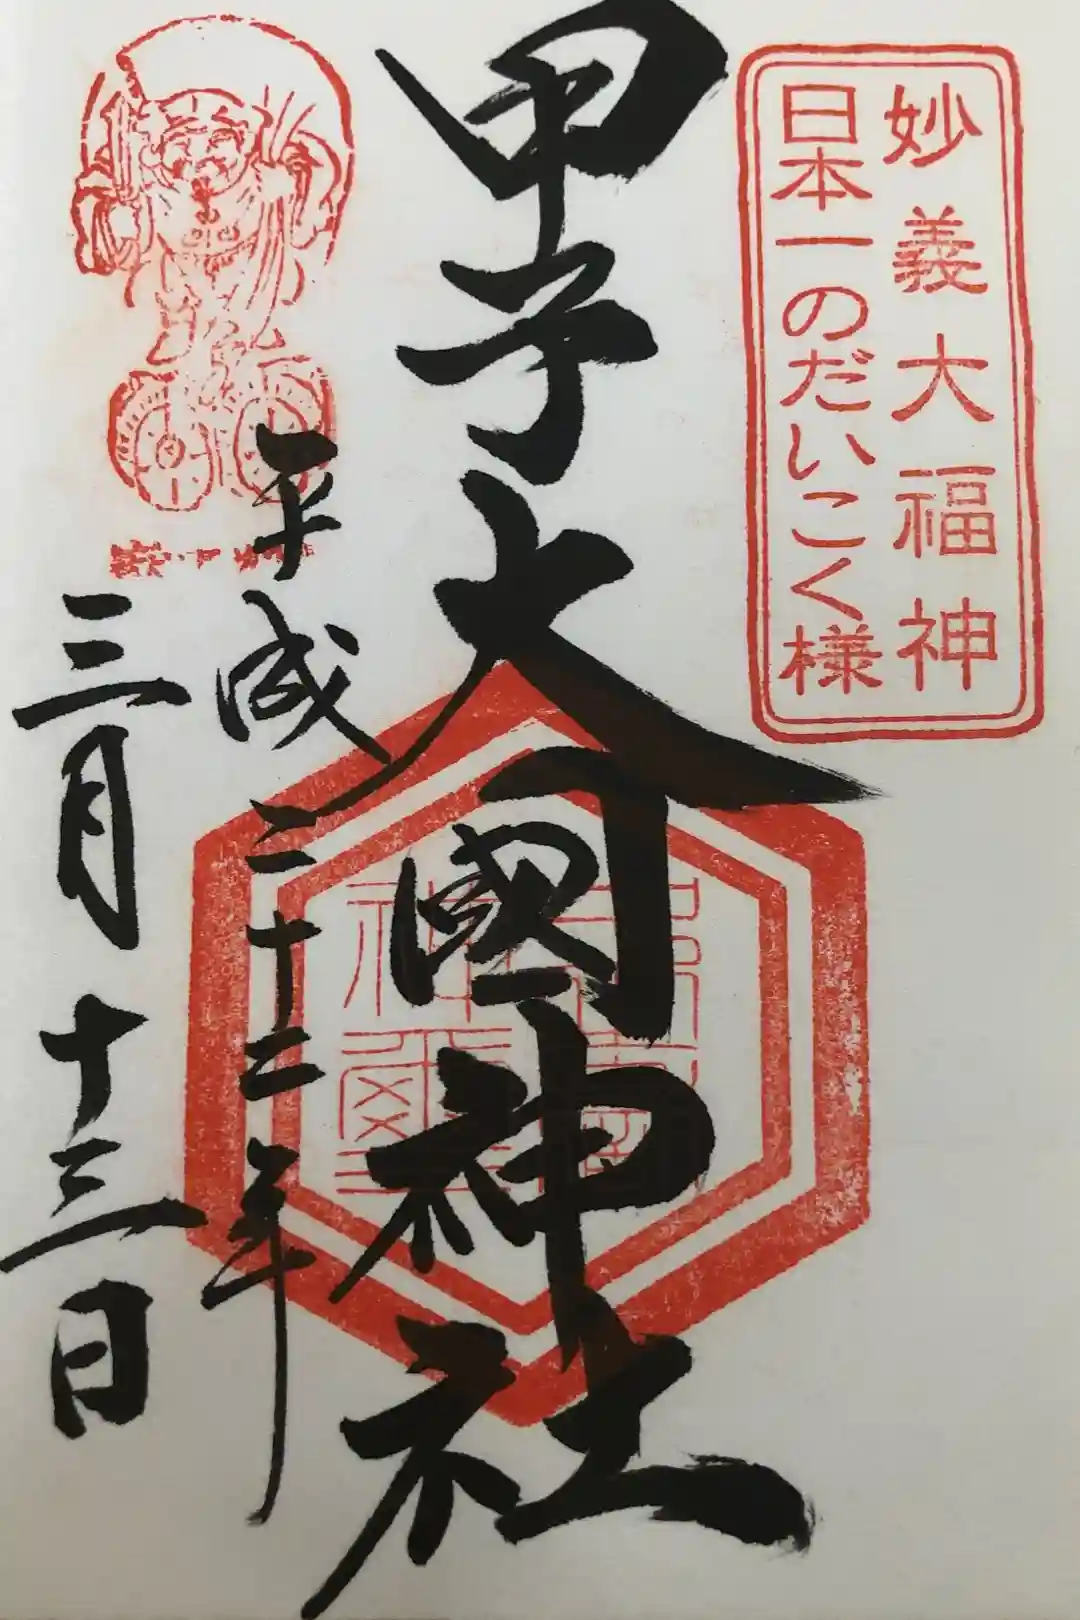 妙義大福神
日本一のだいこく様
甲子大國神社
平成三十二年
三月十三日